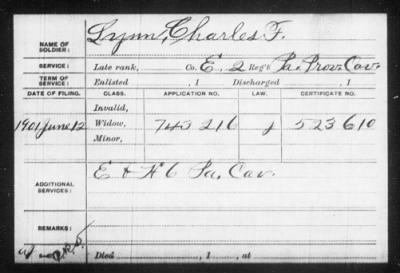 NAME OF SOLDIER: Lynn, Charles F.
SERVICE: Late rank, Co. E, 2 Reg't Pa. Prov. Cav.
TERM OF SERVICE: Enlisted , 1 Discharged , 1
DATE OF FILING. CLASS. APPLICATION NO. LAW. CERTIFICATE NO.
Invalid,
1901 June 12 Widow, 743 216 523 610
Minor,
ADDITIONAL SERVICES: E & H 6 Pa. Cav.
REMARKS:
Died , 1 , at